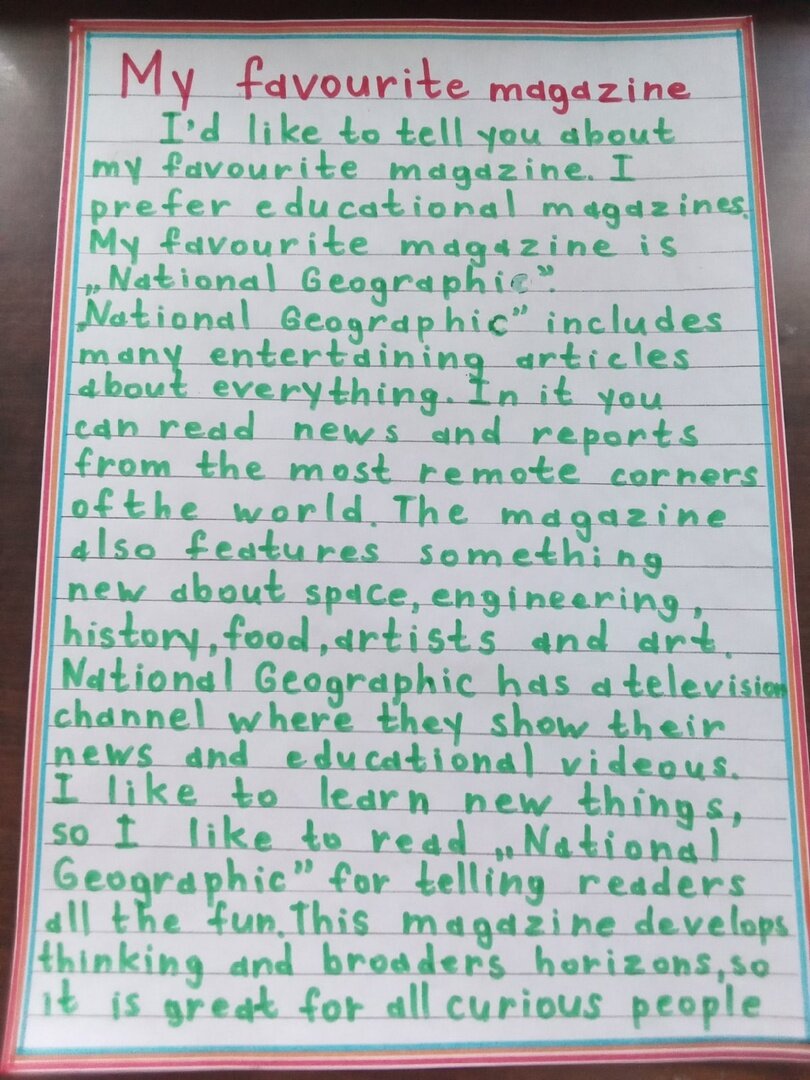 My favourite magazine
I'd like to tell you about
my favourite magazine. I
prefer educational magazines.
My favourite magazine is
„National Geographic".
„National Geographic" includes
many entertaining articles
about everything. In it you
can read news and reports
from the most remote corners
of the world. The magazine
also features something
new about space, engineering,
history, food, artists and art.
National Geographic has a television
channel where they show their
news and educational videous.
I like to learn new things,
so I like to read „National
Geographic" for telling readers
all the fun. This magazine develops
thinking and broaders horizons, so
it is great for all curious people